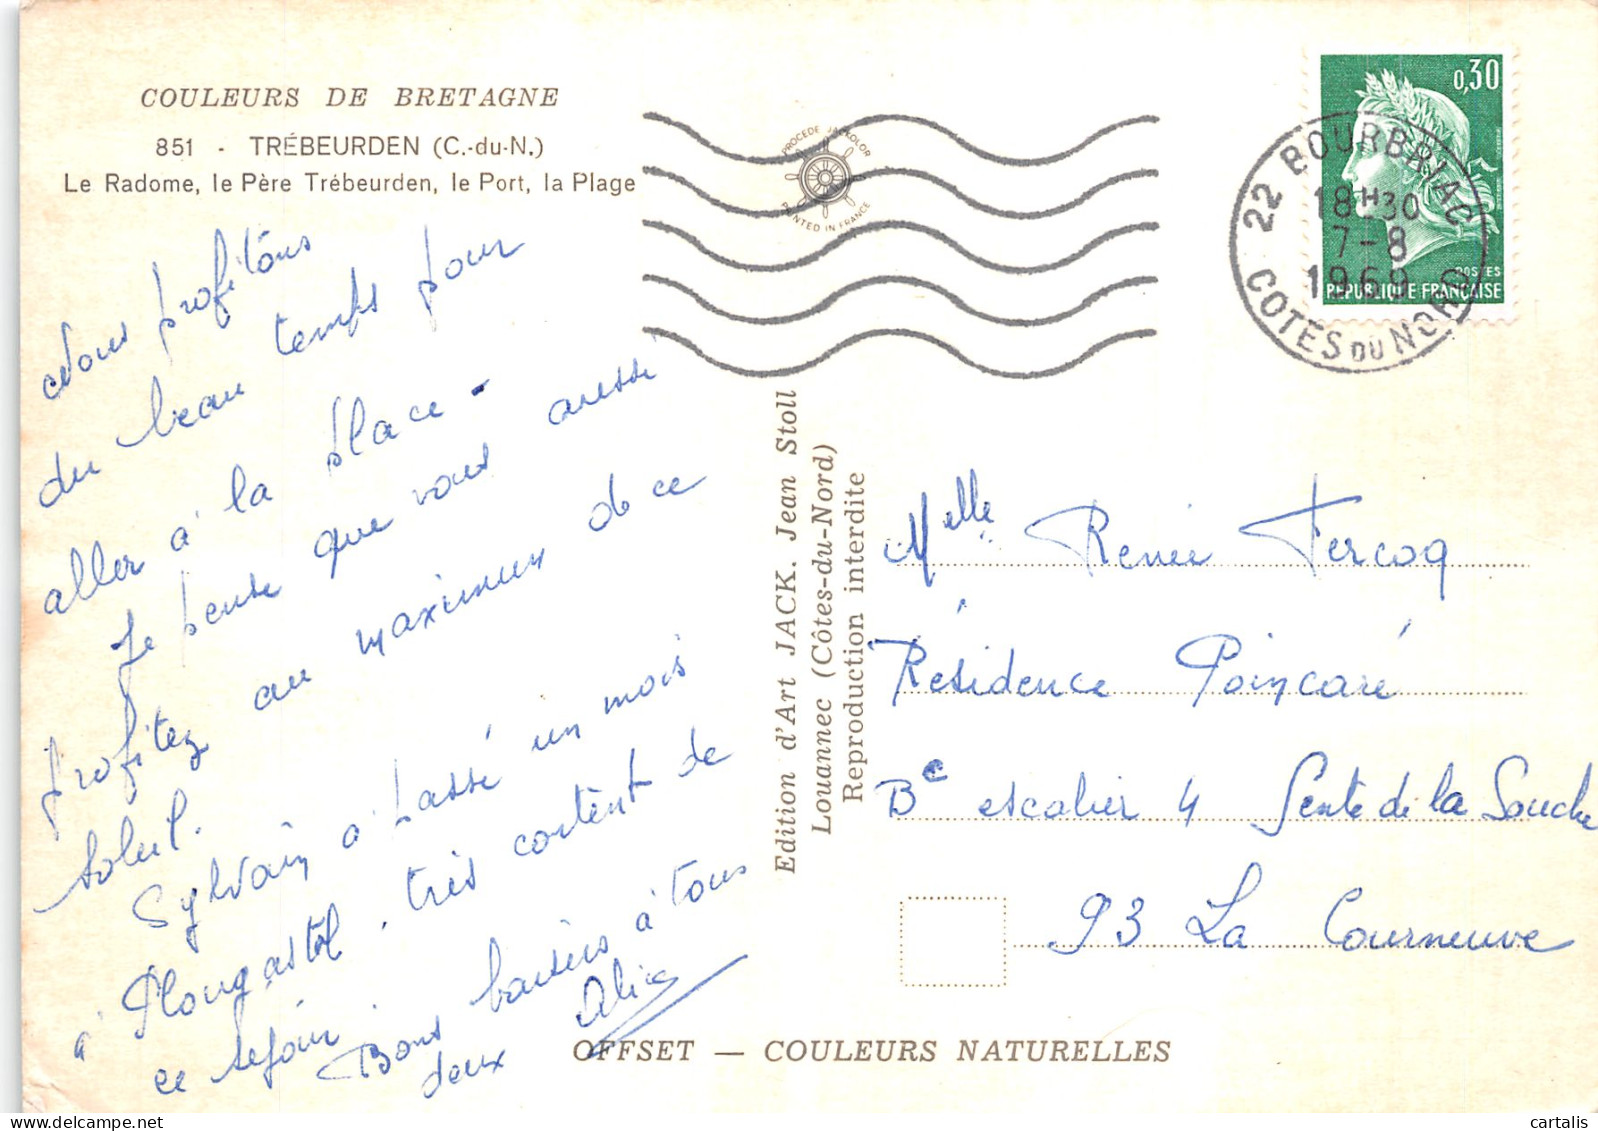 COULEURS DE BRETAGNE
851 - TRÉBEURDEN (C.-du-N.)
Le Radome, le Père Trébeurden, le Port, la Plage
PROCEDE JACKOLOR
PRINTED IN FRANCE
0,30
POSTES
REPUBLIQUE FRANÇAISE
22 BOURBRIAC
18H30
7-8
1969
COTES DU NORD
Nous profitons
du beau temps pour
aller à la place -
Je pense que vous aussi
profitez au maximum de ce
soleil.
Sylvain a passé un mois
à Plougastel. très content de
ce séjour.
Bons baisers à tous
deux Alice
Edition d'Art JACK. Jean Stoll
Louannec (Côtes-du-Nord)
Reproduction interdite
Melle Renée Fercoq
Résidence Poincaré
Bc escalier 4 Sente de la Souche
93 La Courneuve
OFFSET — COULEURS NATURELLES
cartalis